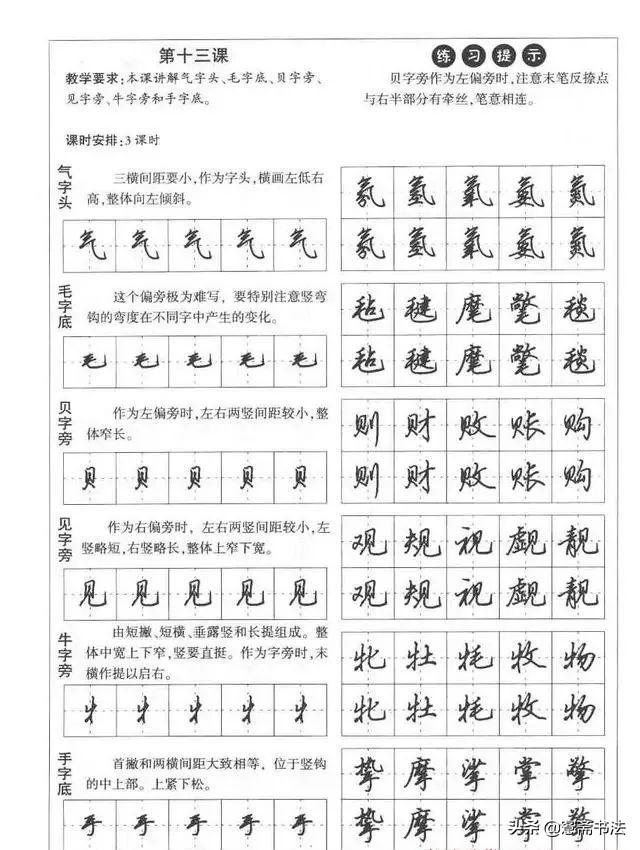 第十三课
教学要求:本课讲解气字头、毛字底、贝字旁、
见字旁、牛字旁和手字底。
课时安排:3课时
练习提示
贝字旁作为左偏旁时,注意末笔反捺点
与右半部分有牵丝,笔意相连。
气字头
三横间距要小,作为字头,横画左低右
高,整体向左倾斜。
气 气 气 气 气
氛 氢 氧 氨 氮
氛 氢 氧 氨 氮
毛字底
这个偏旁极为难写，要特别注意竖弯
钩的弯度在不同字中产生的变化。
毛 毛 毛 毛 毛
毡 毽 麾 氅 毯
毡 毽 麾 氅 毯
贝字旁
作为左偏旁时,左右两竖间距较小,整
体窄长。
贝 贝 贝 贝 贝
则 财 败 账 购
则 财 败 账 购
见字旁
作为右偏旁时，左右两竖间距较小,左
竖略短,右竖略长,整体上窄下宽。
见 见 见 见 见
观 规 视 觑 靓
观 规 视 觑 靓
牛字旁
由短撇、短横、垂露竖和长提组成。整
体中宽上下窄,竖要直挺。作为字旁时,末
横作提以启右。
牜 牜 牜 牜 牜
牝 牡 牦 牧 物
牝 牡 牦 牧 物
手字底
首撇和两横间距大致相等，位于竖钩
的中上部。上紧下松。
手 手 手 手 手
挚 摩 挲 掌 擎
挚 摩 挲 掌 擎